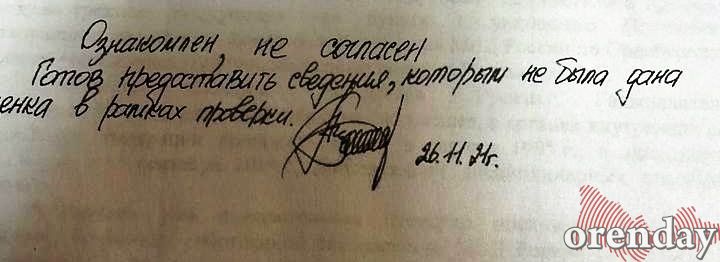 Ознакомлен, не согласен
Готов предоставить сведения, которым не была дана
енка в рамках проверки.
26.11.24г.
orenday